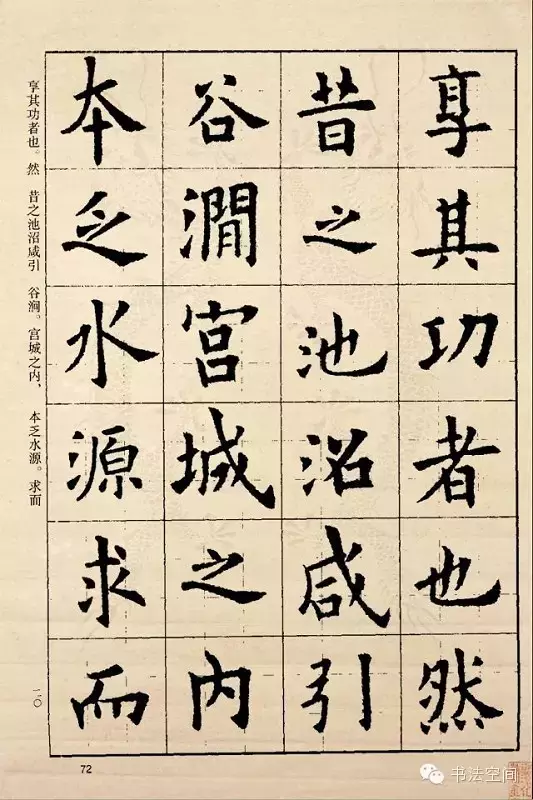 享其功者也然
昔之池沼咸引
谷澗宮城之内
本乏水源求而
享其功者也。然 昔之池沼咸引 谷涧。宫城之内， 本乏水源。求而
二〇
72
书法空间